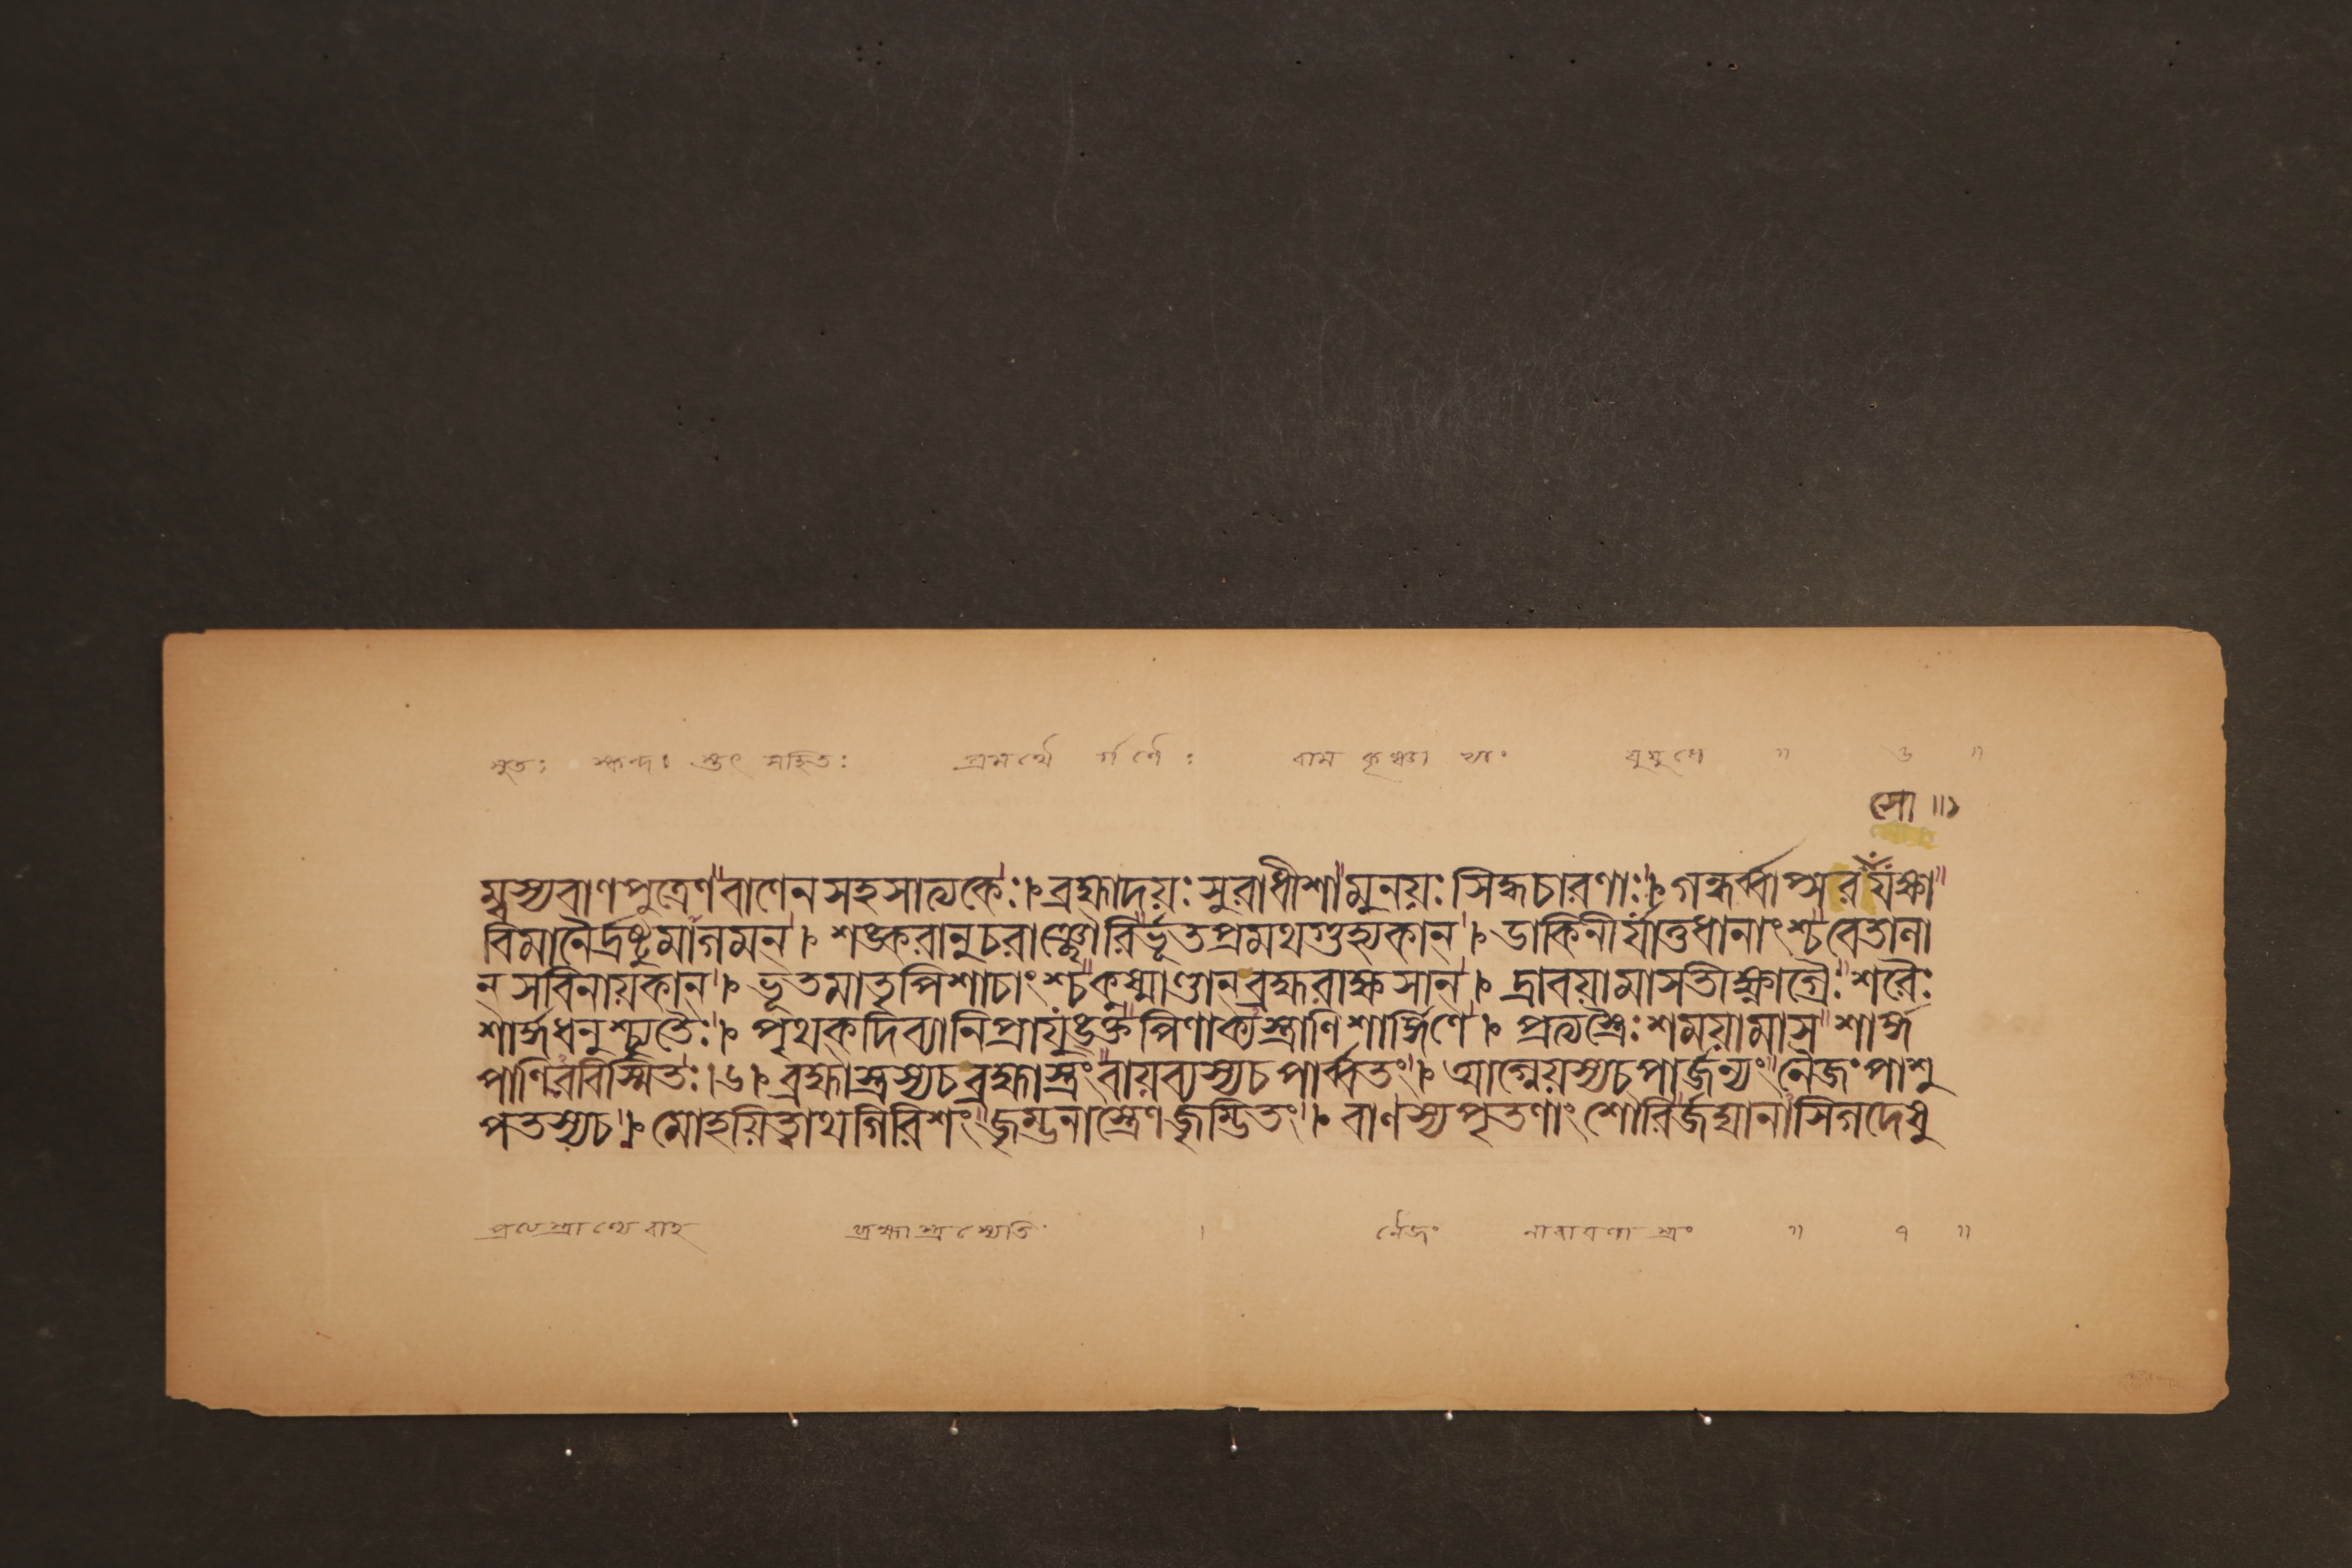 সুতঃ স্কন্দঃ তৎ সহিতঃ প্রমথৈ র্গণৈঃ রাম কৃষ্ণা ভ্যাং যুযুধে ॥ ৬ ॥
সো ॥১
ম্বস্যবাণপুত্রেণবাণেনসহসাত্যকেঃ। ব্রহ্মাদয়ঃসুরাধীশামুনয়ঃসিদ্ধচারণাঃ। গন্ধর্ব্বাপ্সরযক্ষা
বিমানৈর্দ্রষ্টুমাগমন। শঙ্করানুচরাঞ্ছৌরির্ভূতপ্রমথগুহ্যকান। ডাকিনীর্যাতুধানাংশ্চবেতালা
নসবিনায়কান। ভূতমাতৃপিশাচাংশ্চকুষ্মাণ্ডানব্রহ্মরাক্ষসান। দ্রাবয়ামাসতীক্ষ্ণাগ্রৈঃশরৈঃ
শার্ঙ্গধনুশ্চ্যুতৈঃ। পৃথকদিব্যানিপ্রাযুঙ্ক্তপিণাক্যস্ত্রাণিশার্ঙ্গিণে। প্রত্যস্ত্রৈঃশময়ামাসশার্ঙ্গ
পাণিরবিস্মিতঃ।৬। ব্রহ্মাস্ত্রস্যচব্রহ্মাস্ত্রংবায়ব্যস্যচপার্ব্বতং। আগ্নেয়স্যচপার্জ্জন্যংনৈজংপাশু
পতস্যচ। মোহয়িত্বাথগিরিশংজৃম্ভনাস্ত্রেণজৃম্ভিতং। বাণস্যপৃতণাংশৌরির্জঘানাসিগদেষু
ব্রহ্মাস্ত্রস্যেতি। নৈজং নারায়ণাস্ত্রং ॥ ৭ ॥